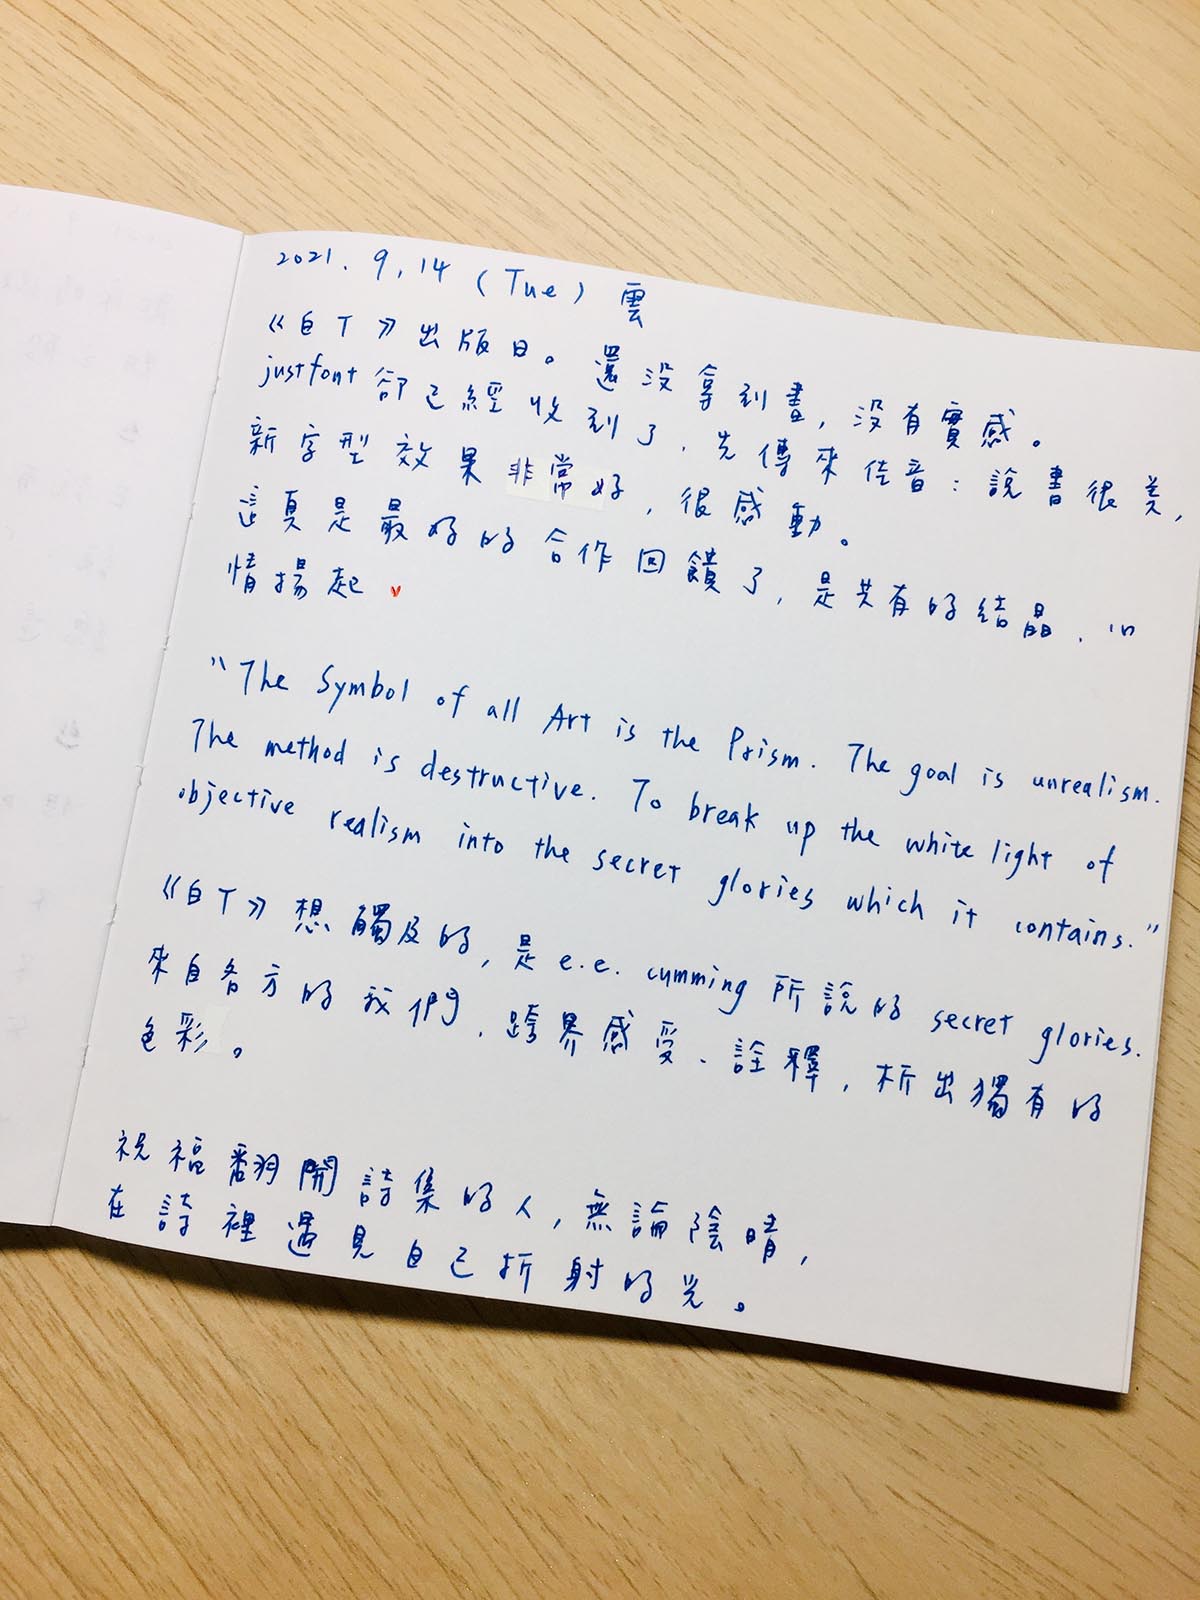 2021. 9. 14 (Tue) 雲
《白T》出版日。還沒拿到書,沒有實感。
justfont 卻已經收到了、先傳來佳音:說書很美,
新字型效果非常好,很感動。
這真是最好的合作回饋了,是共有的結晶、心
情揚起
"The Symbol of all Art is the Prism. The goal is unrealism.
The method is destructive. To break up the white light of
objective realism into the secret glories which it contains."
《白T》想觸及的,是 e.e. cumming 所說的 secret glories.
來自各方的我們、跨界感受、詮釋,析出獨有的
色彩。
祝福翻開詩集的人,無論陰晴,
在詩裡遇見自己折射的光。